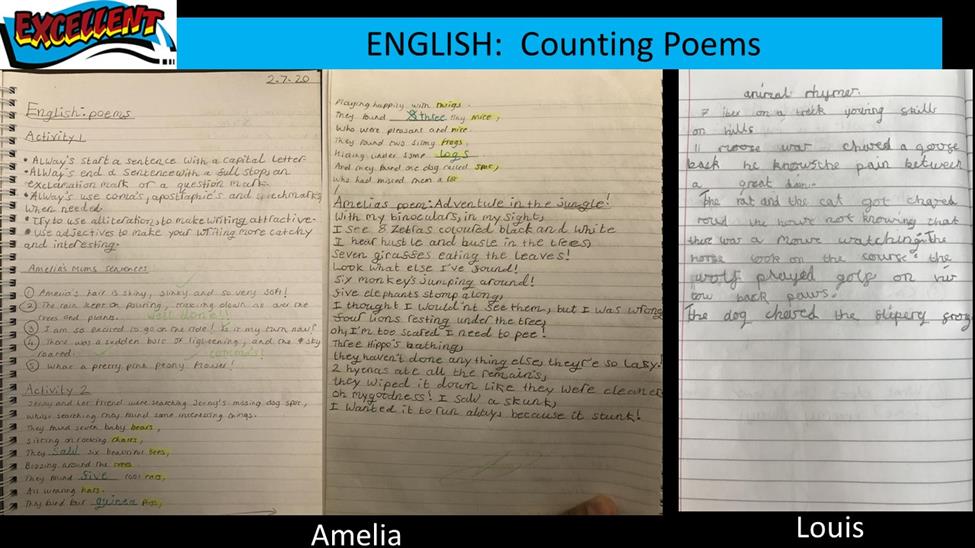 EXCELLENT
ENGLISH: Counting Poems
2-7-20
English: poems
Activity 1
• Always start a sentence with a capital letter.
• Always end a sentence with a full stop, an
exclamation mark or a question mark.
• Always use coma's, apostraphie's and speechmarks
when needed.
• Try to use alliteration, to make writing attractive.
• Use adjectives to make your writing more catchy
and interesting.
Amelia's Mums sentences
① Amelia's hair is shiny, slinky and so very soft!
② The rain kept on pouring, down as over the
trees and plants. Well done!!
③ I am so excited to go on the ride! Is it my turn now?
④ There was a sudden bolt of lightening, and the sky
roared.
⑤ What a pretty, pink peony flower!
Activity 2
Jenny and her friend were searching Jenny's missing dog spot,
whilst searching they found some interesting things.
They found seven baby bears,
Sitting on rocking chairs,
They saw six beautiful bees,
Buzzing around the trees
They found five cool cats,
All wearing hats.
They found four guinea pigs,
Playing happily with twigs.
They found three tiny mice,
Who were pleasant and nice.
They found two slimy frogs,
Hiding under some logs
And they found one dog called spot,
Who had missed them a lot
Amelia's poem: Adventure in the Jungle!
With my binoculars, in my sight,
I see 8 Zebras coloured black and white
I hear hustle and bustle in the trees,
Seven giraffes eating the leaves!
Look what else I've found!
Six monkey's jumping around!
five elephants stomp along,
I thought I would'nt see them, but I was wrong
four lions resting under the tree,
oh, I'm too scared I need to pee!
Three Hippo's bathing,
they haven't done anything else, they're so lazy!
2 hyenas ate all the remain's,
they wiped it down like they were cleaners
oh my goodness! I saw a skunk,
I wanted it to run away because it stunk!
animal rhymes.
7 on a treck
on hills
11 moose was chased a goose
back he knows the pain between
a great
The rat and the cat got chased
round the house not knowing that
there was a mouse watching. The
horse took on the course. the
wolf played golf on
back paws.
The dog chased the slipery
Amelia
Louis